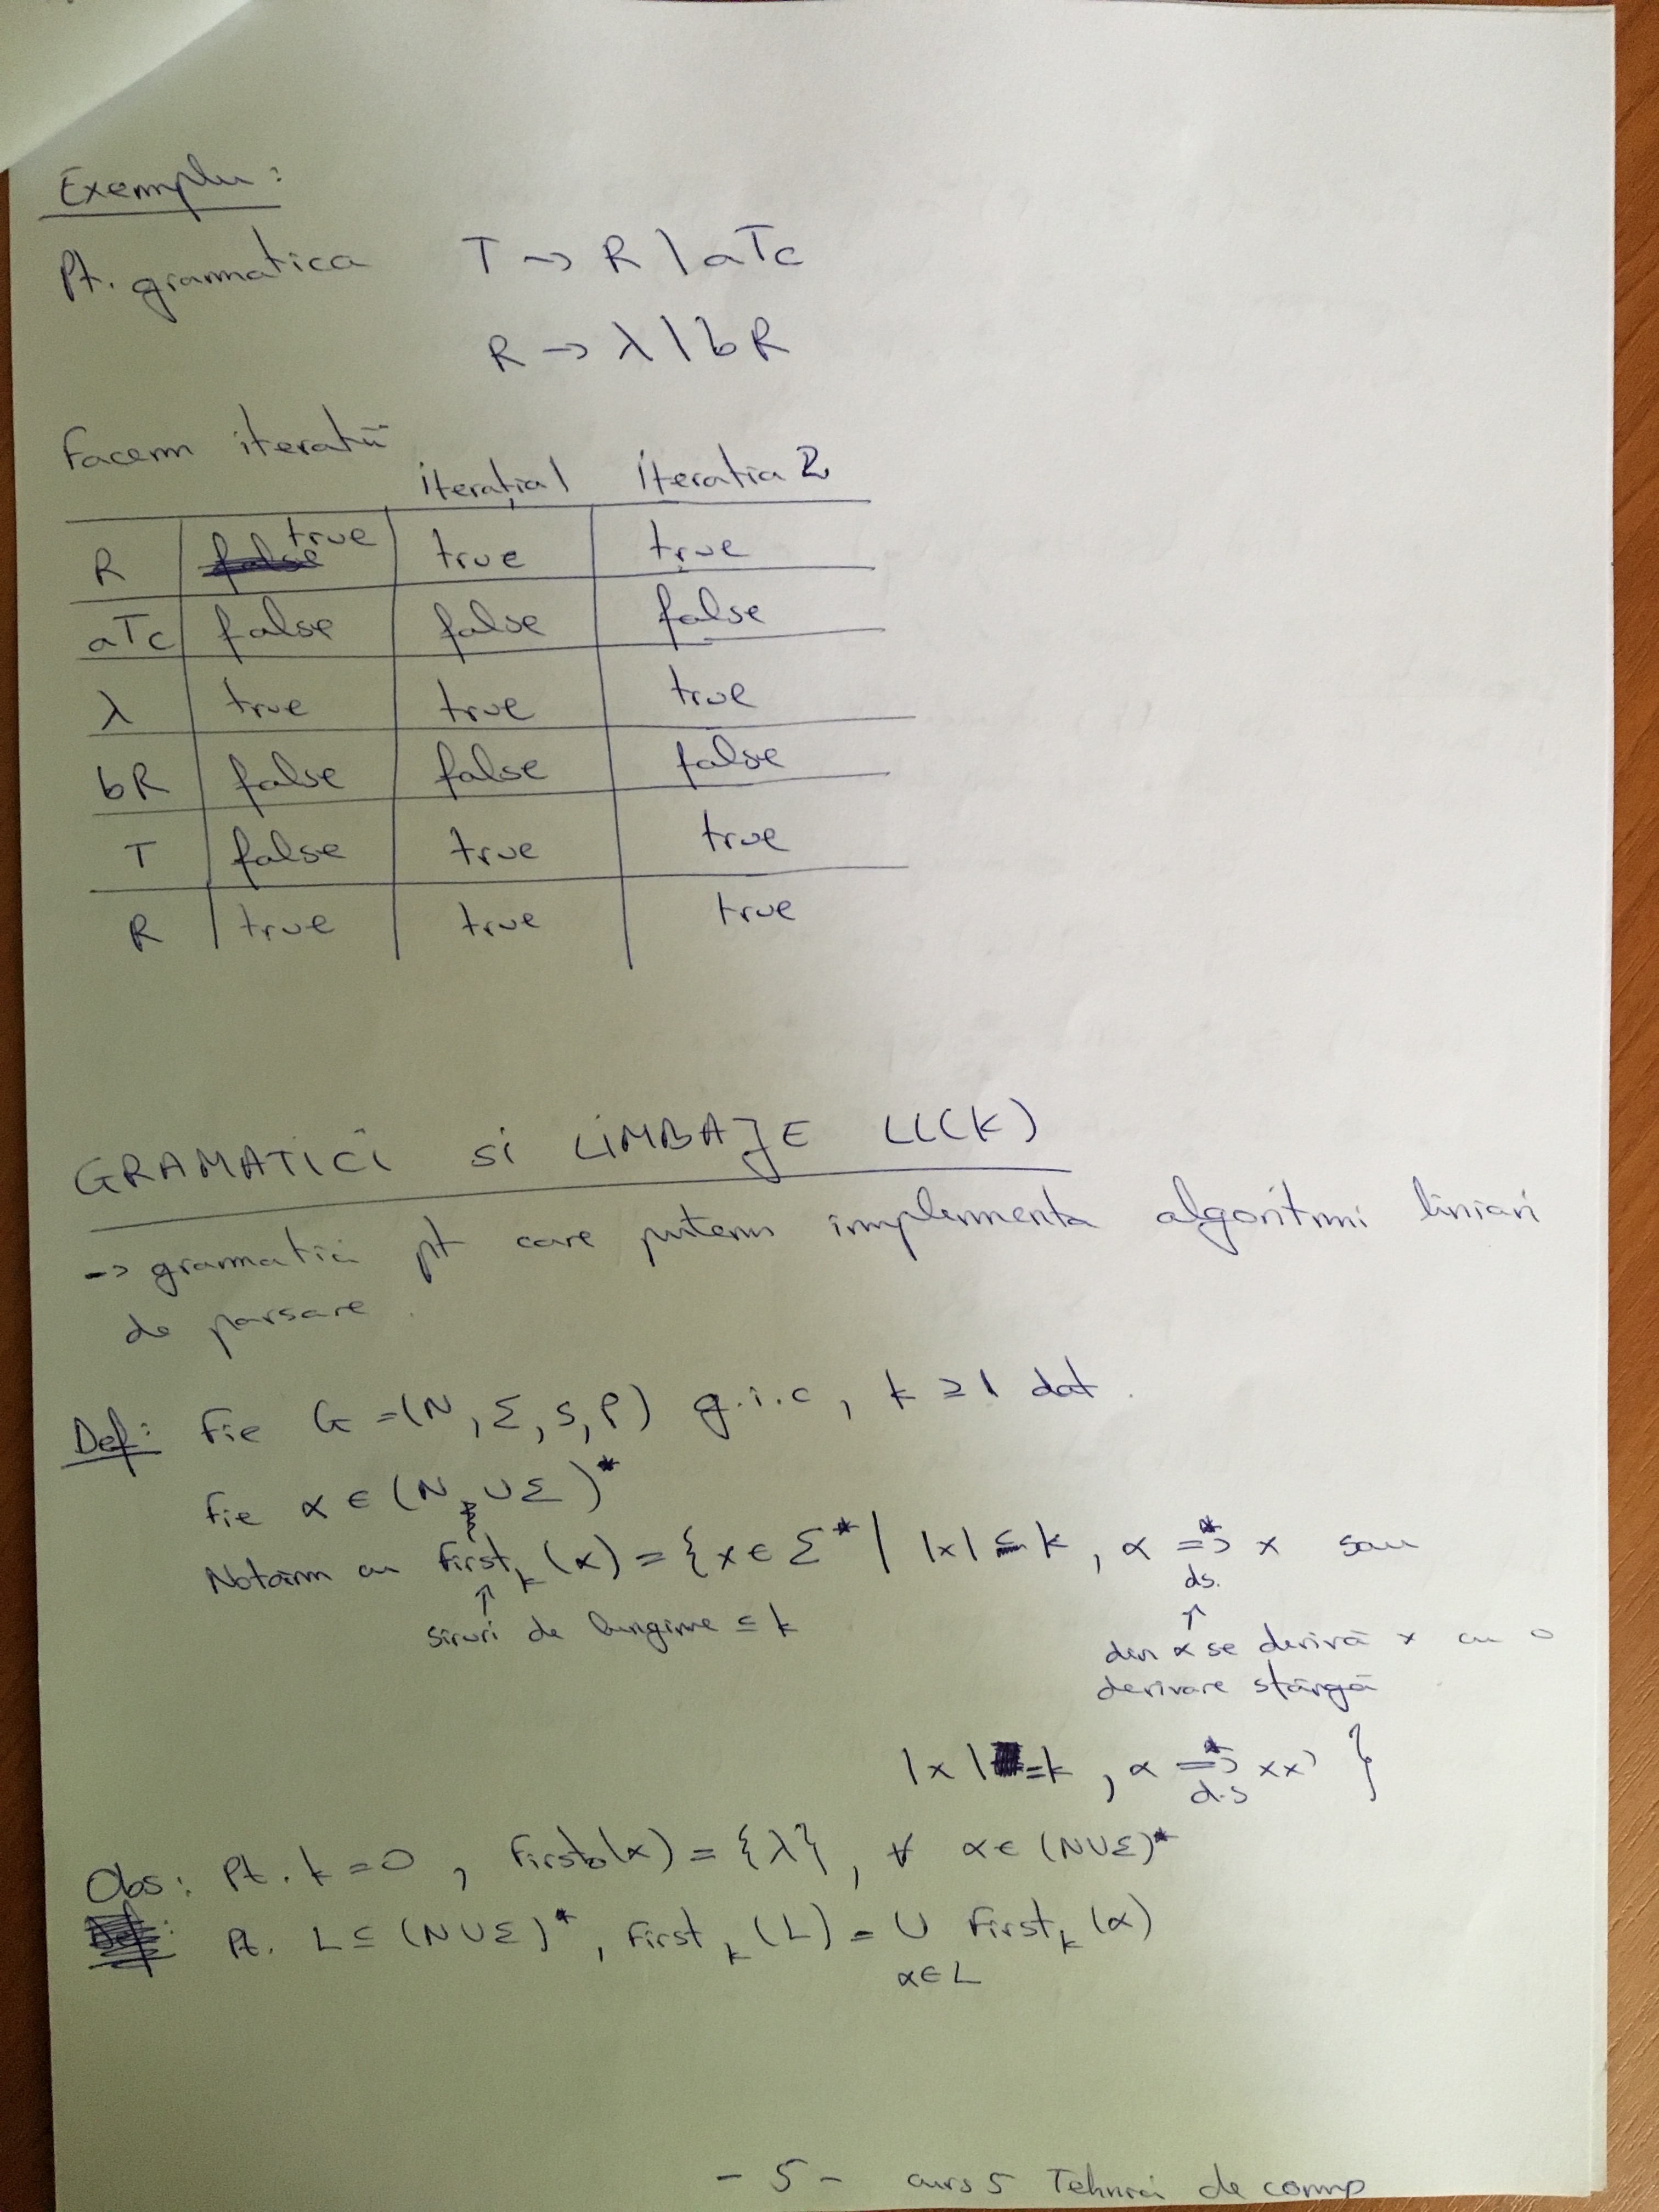 Exemplu:
Pt. gramatica T -> R | aTc
R -> λ | bR
Facem iteratii
iterația 1 iteratia 2
R true true true
aTc false false false
λ true true true
bR false false false
T false true true
R true true true
GRAMATICI si LIMBAJE LL(K)
-> gramatici pt care putem implementa algoritmi liniari
de parsare.
Def: Fie G = (N, Σ, S, P) g.i.c, k ≥ 1 dat.
Fie α ∈ (N ∪ Σ)*
Notăm cu First_k (α) = { x ∈ Σ* | |x| ≤ k, α =*=> x sau
ds.
↑ ↑
siruri de lungime ≤ k
din α se derivă x cu o
derivare stângă
|x| = k, α =*=> xx' }
d.s
Obs: Pt. k = 0, First_0(α) = {λ}, ∀ α ∈ (N∪Σ)*
Pt. L ⊆ (N∪Σ)*, First_k (L) = ∪ First_k (α)
α∈L
- 5 - curs 5 Tehnici de comp